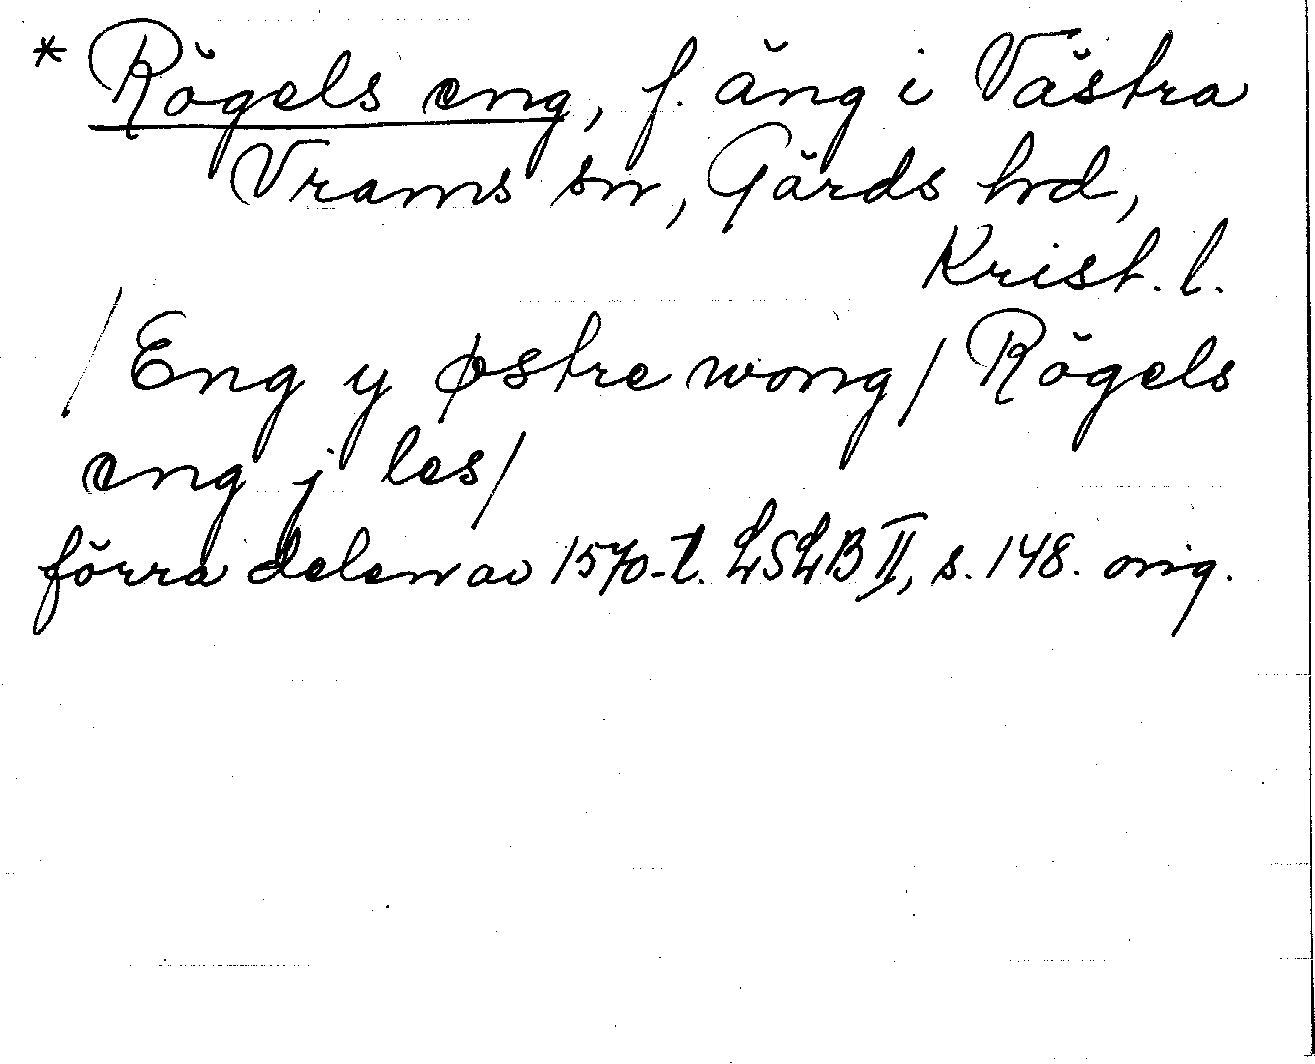 * Rögels eng, f. äng i Västra
Vrams sn, Gärds hd,
Krist. l.
/ Eng y østre wong / Rögels
eng j les /
förra delen av 1570-t. LSLB II, s. 148. orig.